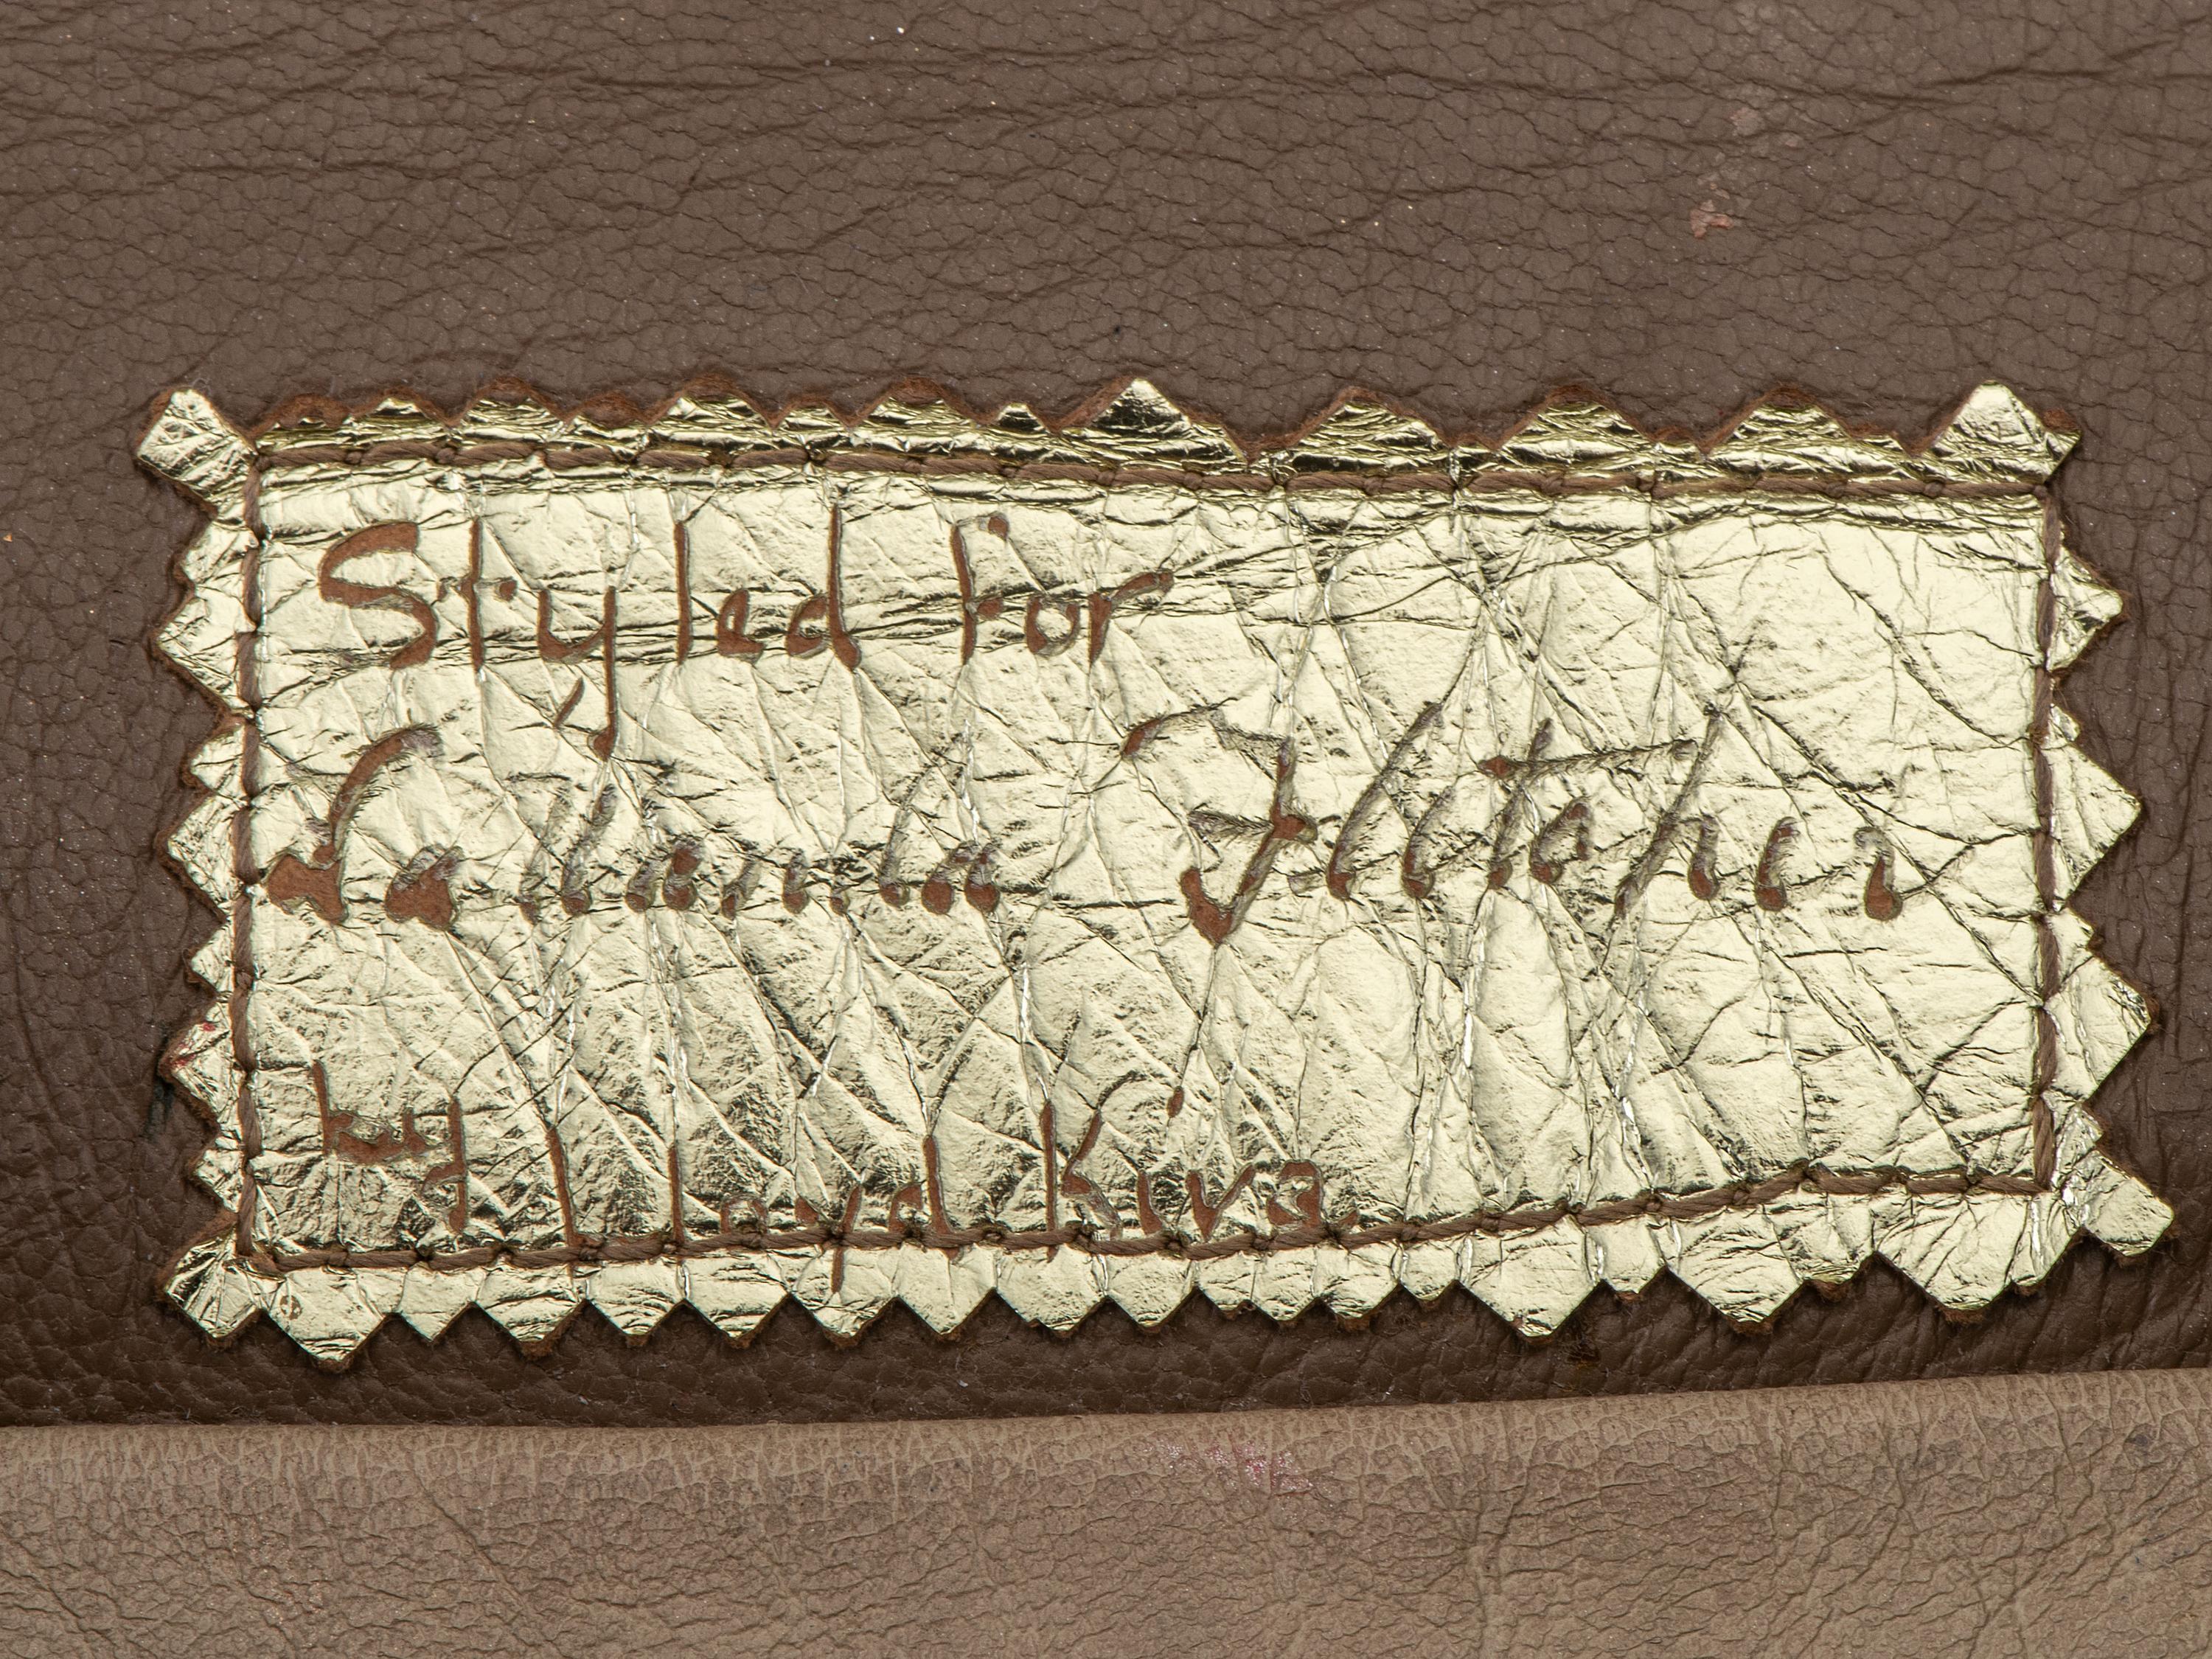 Styled for
Fletcher
by Lloyd Kiva